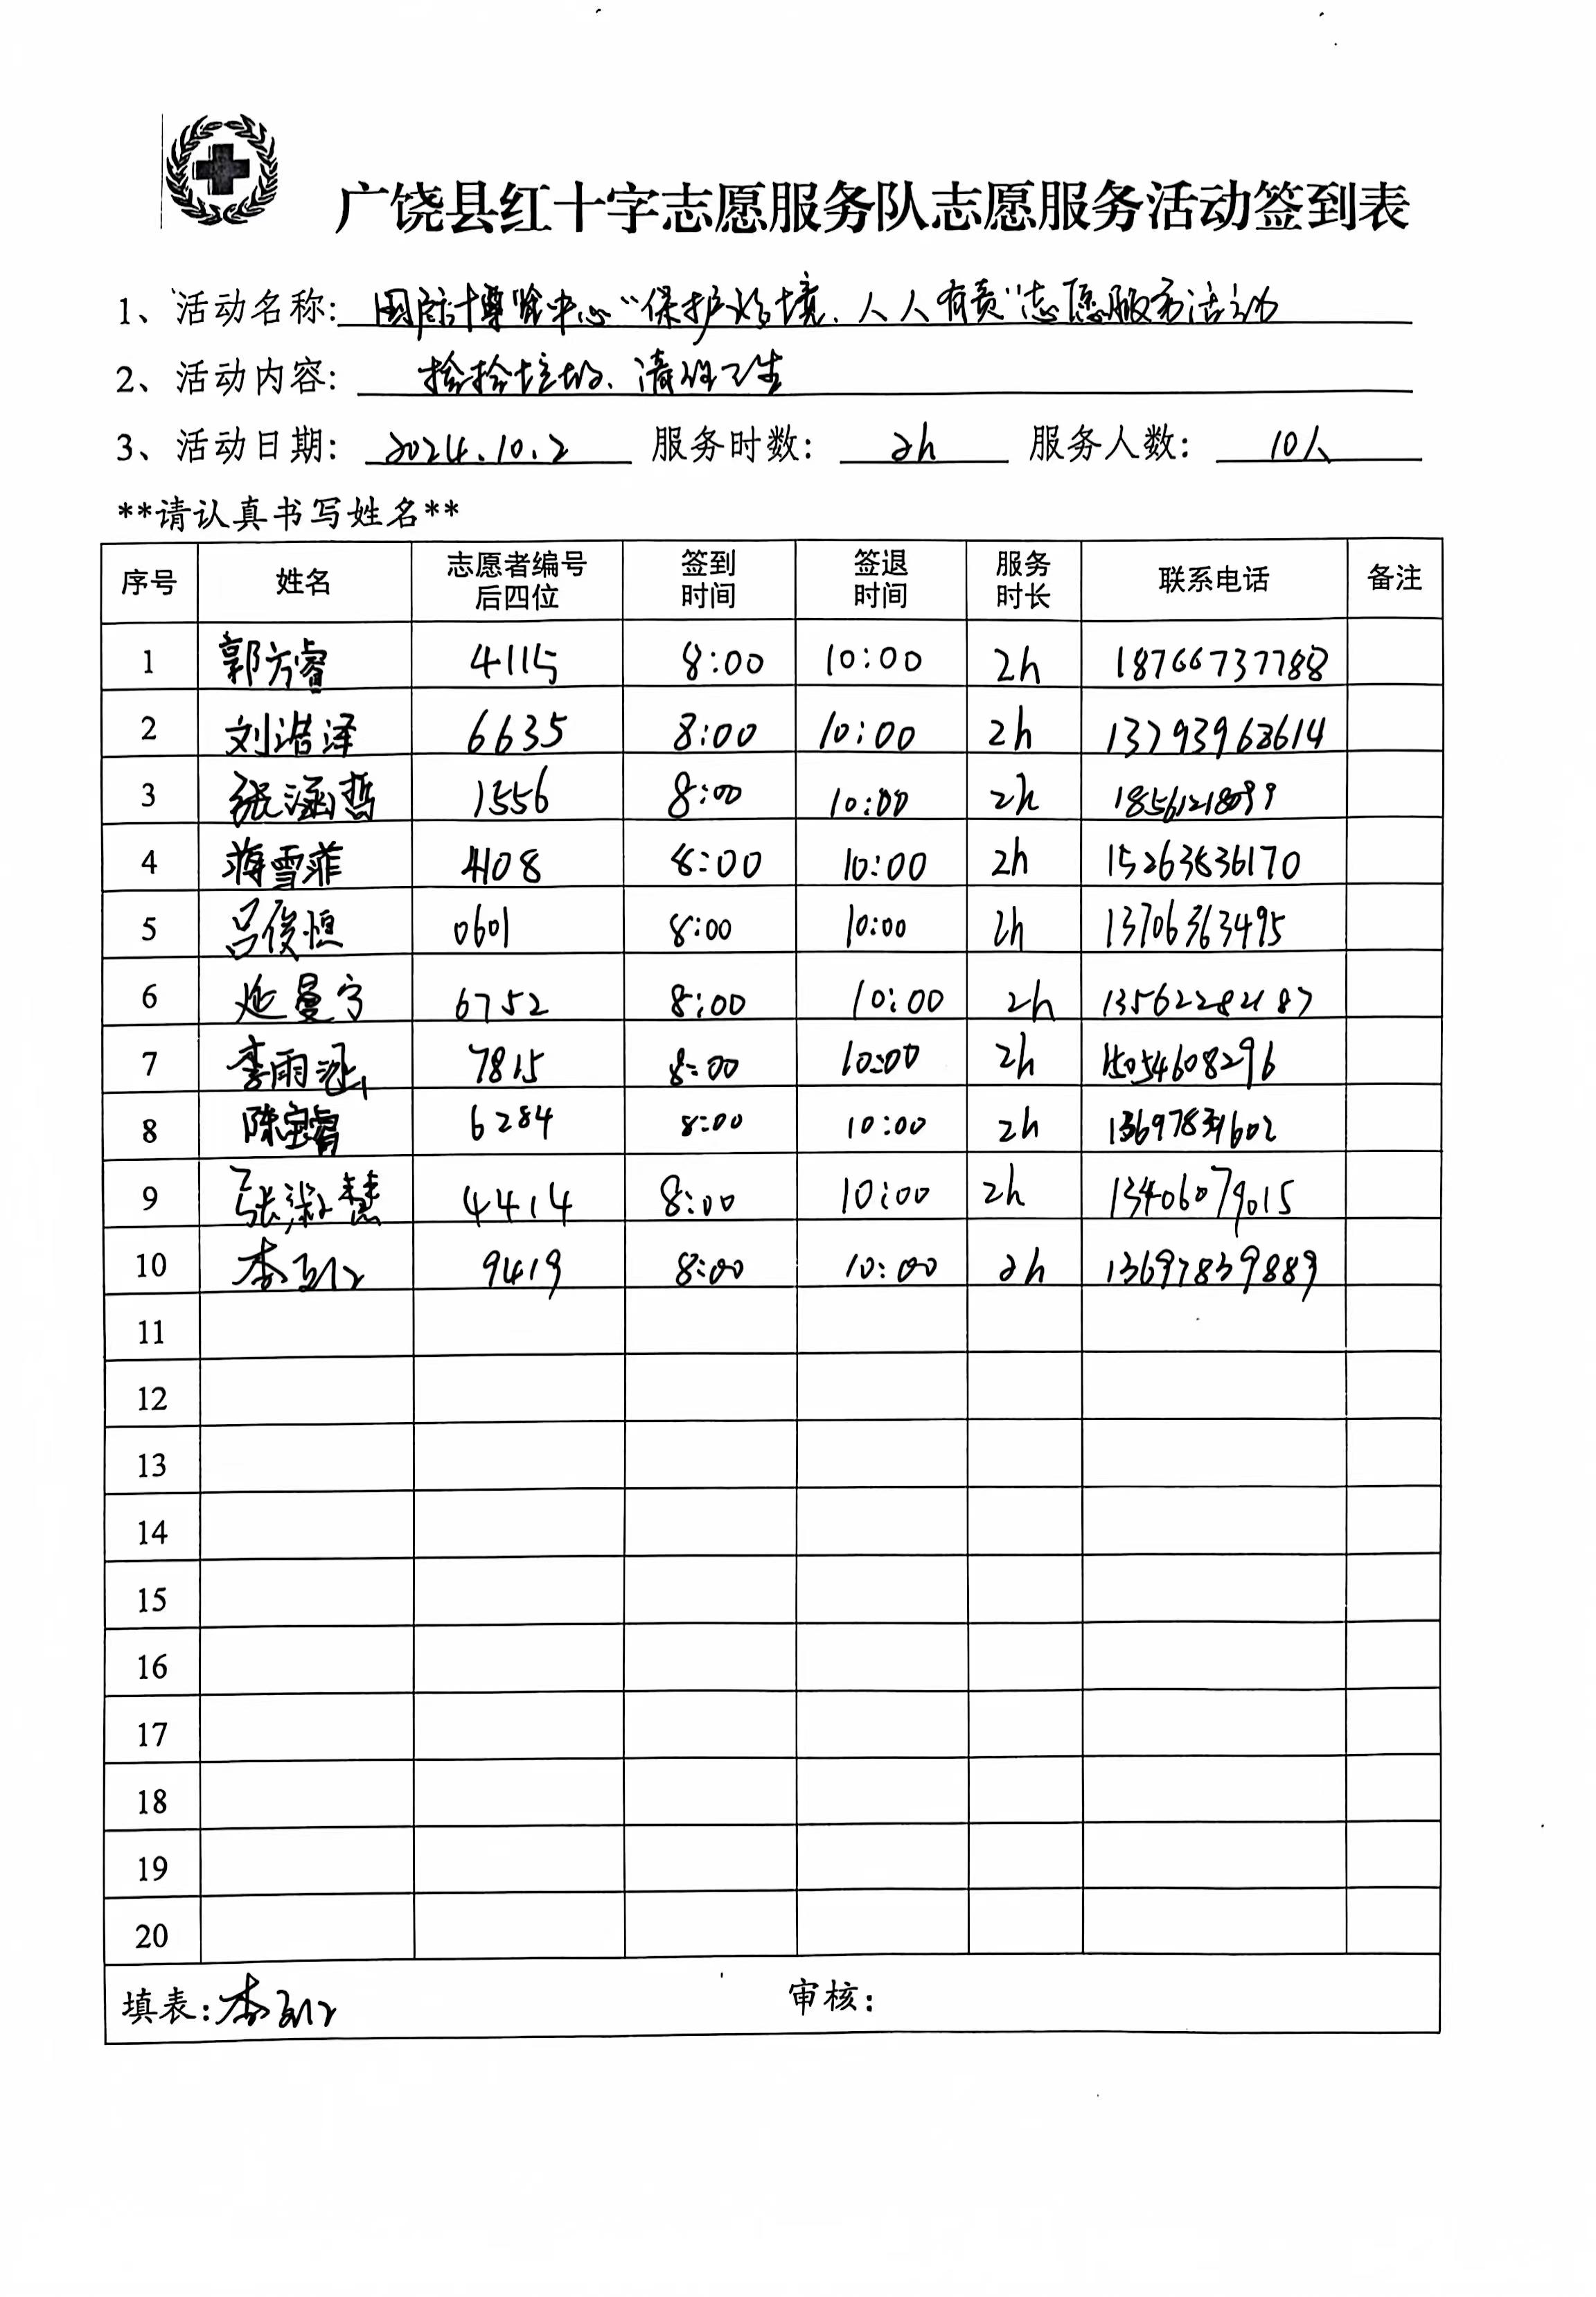 广饶县红十字志愿服务队志愿服务活动签到表
1、活动名称: 国际博览中心“保护环境、人人有责”志愿服务活动
2、活动内容: 捡拾垃圾、清理卫生
3、活动日期: 2024.10.2 服务时数: 2h 服务人数: 10人
**请认真书写姓名**
序号 姓名 志愿者编号后四位 签到时间 签退时间 服务时长 联系电话 备注
1 郭方睿 4115 8:00 10:00 2h 18766737788
2 刘浩泽 6635 8:00 10:00 2h 13793963614
3 张涵哲 1556 8:00 10:00 2h
4 蒋雪菲 4108 8:00 10:00 2h 15263836170
5 吕俊恒 0601 8:00 10:00 2h 13706363495
6 延曼宁 6752 8:00 10:00 2h 13562282187
7 李雨涵 7815 8:00 10:00 2h 15054608296
8 陈宝睿 6284 8:00 10:00 2h
9 张淑慧 4414 8:00 10:00 2h 13406079015
10 李 9419 8:00 10:00 2h 13697839889
11
12
13
14
15
16
17
18
19
20
填表: 李 审核: